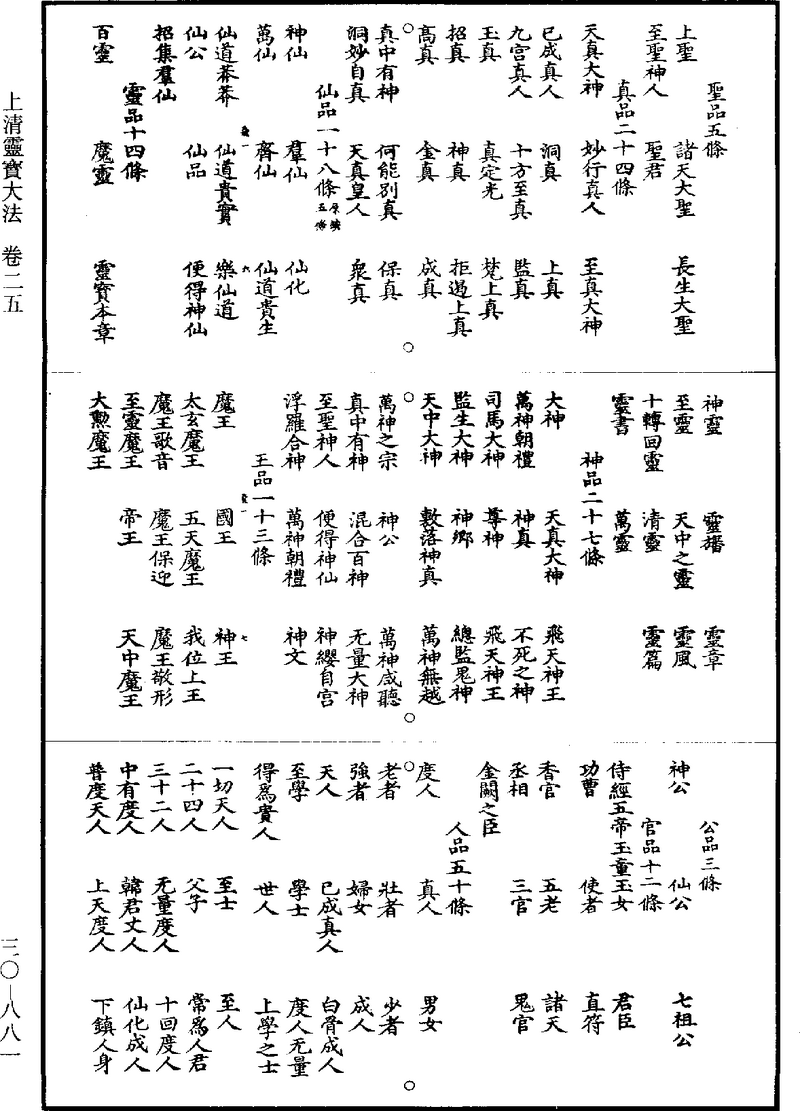 上清靈寶大法　卷二五
三〇—八八一
聖品五條
上聖　諸天大聖　長生大聖
至聖神人　聖君
真品二十四條
天真大神　妙行真人　至真大神
已成真人　洞真　上真
九宮真人　十方至真　監真
玉真　真定光　梵上真
招真　神真　拒遏上真
高真　金真　成真
真中有神　何能別真　保真
洞妙自真　天真皇人　衆真
仙品一十八條
神仙　羣仙　仙化
萬仙　齊仙　仙道貴生
仙道莽莽　仙道貴實　樂仙道
仙公　仙品　便得神仙
招集羣仙
靈品十四條
百靈　魔靈　靈寶本章
神靈　靈旛　靈章
至靈　天中之靈　靈風
十轉回靈　清靈　靈篇
靈書　萬靈
神品二十七條
大神　天真大神　飛天神王
萬神朝禮　神真　不死之神
司馬大神　尊神　飛天神王
監生大神　神鄉　總監鬼神
天中大神　敷落神真　萬神無越
萬神之宗　神公　萬神咸聽
真中有神　混合百神　无量大神
至聖神人　便得神仙　神纓自宮
浮羅合神　萬神朝禮　神文
王品一十三條
魔王　國王　神王
太玄魔王　五天魔王　我位上王
魔王歌音　魔王保迎　魔王敬形
至靈魔王　帝王　天中魔王
大勲魔王
公品三條
神公　仙公　七祖公
官品十二條
侍經五帝玉童玉女　君臣
功曹　使者　直符
香官　五老　諸天
丞相　三官　鬼官
金闕之臣
人品五十條
度人　真人　男女
老者　壯者　少者
強者　婦女　成人
天人　已成真人　白骨成人
至學　學士　度人无量
得爲貴人　世人　上學之士
一切天人　至士　至人
二十四人　父子　常爲人君
三十二人　无量度人　十回度人
中有度人　韓君丈人　仙化成人
普度天人　上天度人　下鎮人身